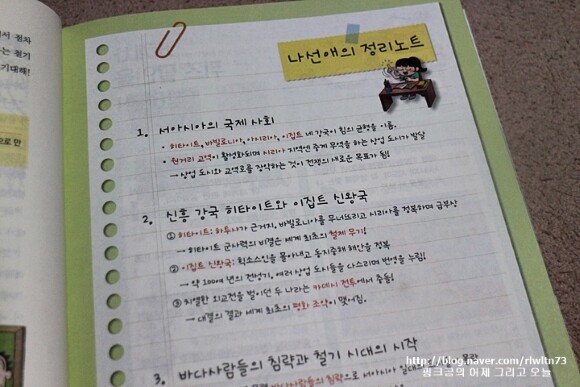 서 점차
는 철기
기대해!
으로 만
나선애의 정리노트
1. 서아시아의 국제 사회
• 히타이트, 바빌로니아, 아시리아, 이집트 네 강국이 힘의 균형을 이룸.
• 원거리 교역이 활성화되며 시리아 지역엔 중계 무역을 하는 상업 도시가 발달
→ 상업 도시와 교역로를 장악하는 것이 전쟁의 새로운 목표가 됨!
2. 신흥 강국 히타이트와 이집트 신왕국
① 히타이트: 하투사가 근거지, 바빌로니아를 무너뜨리고 시리아를 정복하며 급부상
→ 히타이트 군사력의 비결은 세계 최초의 철제 무기!
② 이집트 신왕국: 힉소스인을 몰아내고 동지중해 해안을 정복
→ 약 200여 년의 전성기, 여러 상업 도시들을 다스리며 번영을 누림!
③ 치열한 외교전을 벌이던 두 나라는 카데시 전투에서 충돌!
→ 대결의 결과 세계 최초의 평화 조약이 맺어짐.
3. 바다사람들의 침략과 철기 시대의 시작
바다사람들의 침략으로 서아시아 일대의
http://blog.naver.com/rlwltn73
핑크공의 어제 그리고 오늘